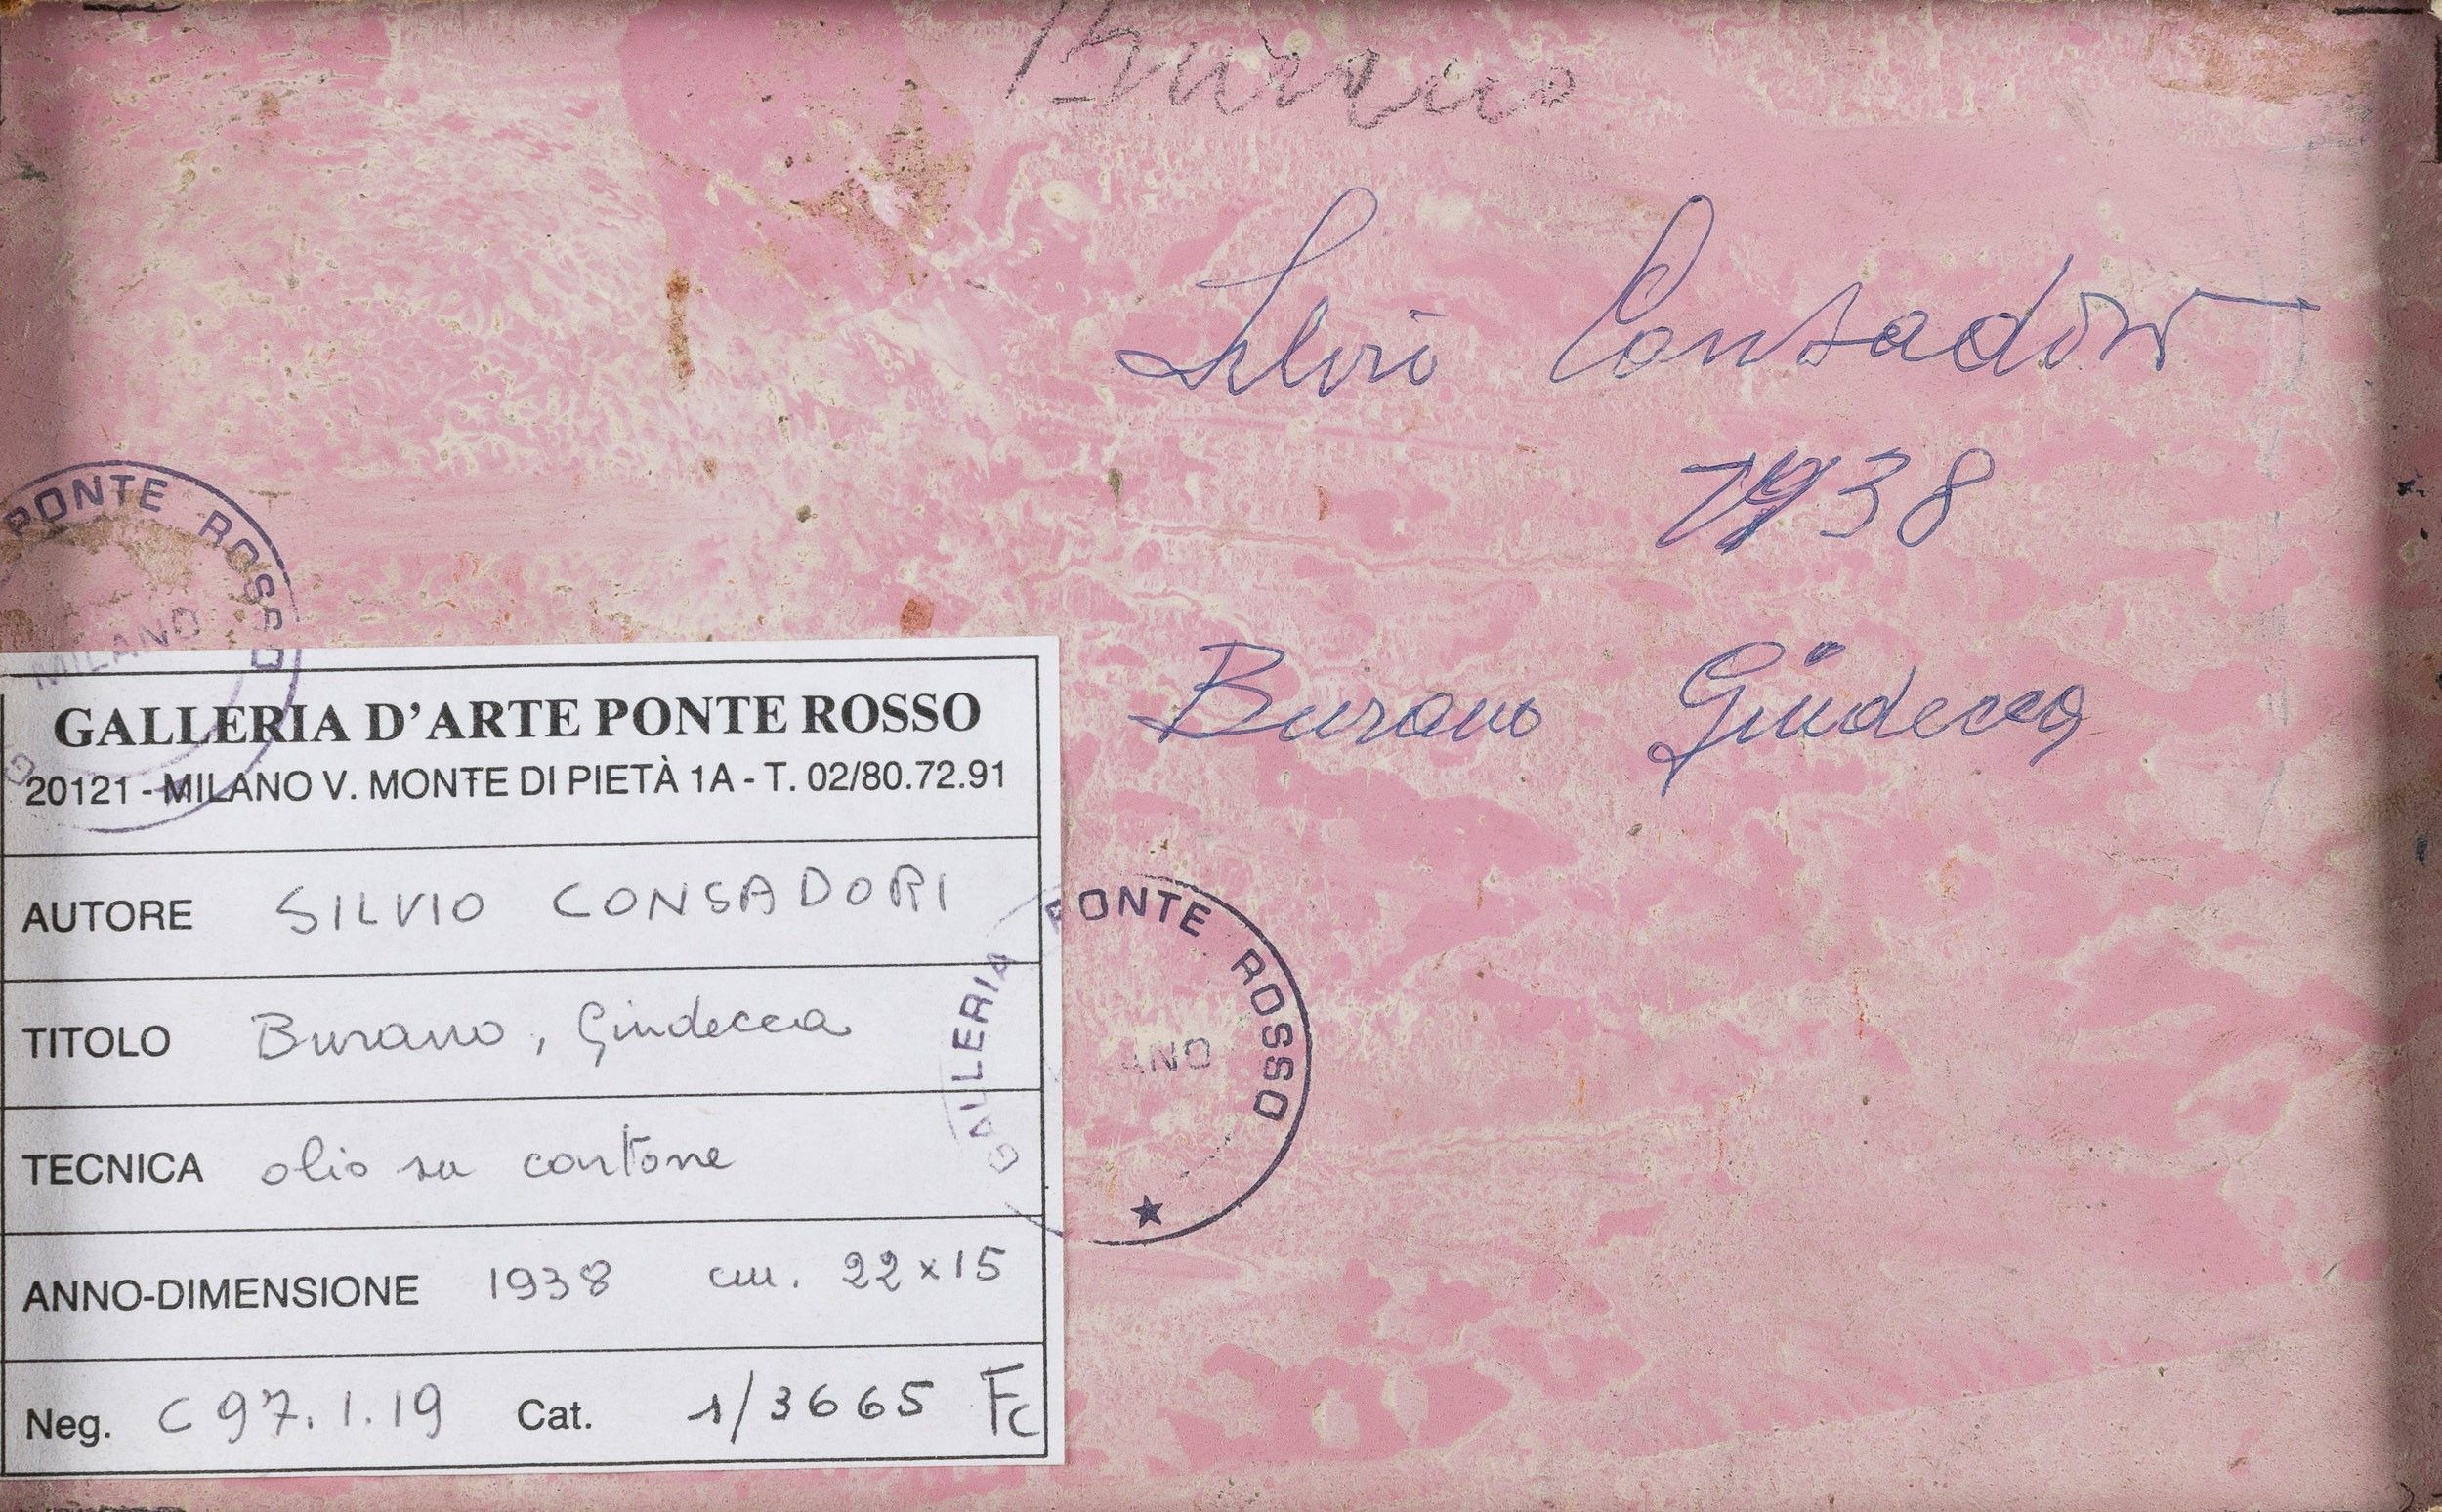 Burano
Silvio Consadori
1938
Burano Giudecca
PONTE ROSSO
MILANO
G
GALLERIA D'ARTE PONTE ROSSO
20121 - MILANO V. MONTE DI PIETÀ 1A - T. 02/80.72.91
AUTORE SILVIO CONSADORI
TITOLO Burano, Giudecca
TECNICA olio su cartone
ANNO-DIMENSIONE 1938 cm. 22x15
Neg. C 97.1.19 Cat. 1/3665 Fc
GALLERIA PONTE ROSSO
ANO